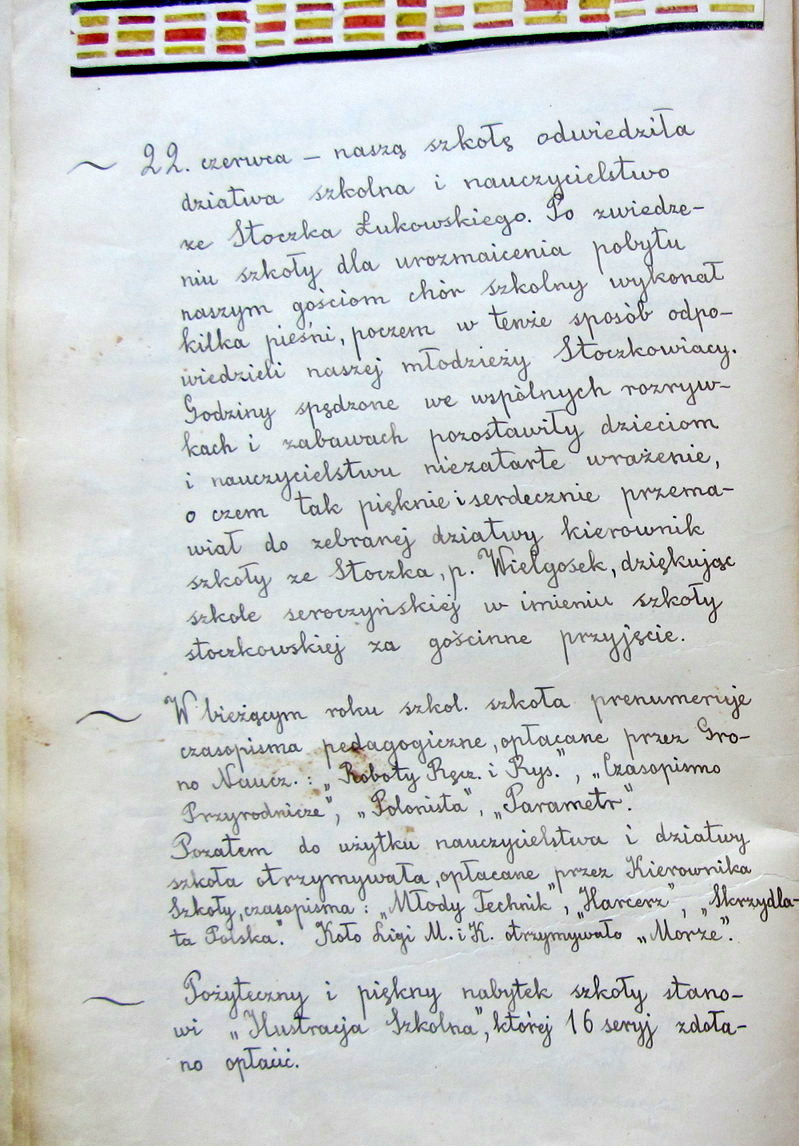 ~ 22. czerwca – naszą szkołę odwiedziła
dziatwa szkolna i nauczycielstwo
ze Stoczka Łukowskiego. Po zwiedze-
niu szkoły dla urozmaicenia pobytu
naszym gościom chór szkolny wykonał
kilka pieśni, poczem w tenże sposób odpo-
wiedzieli naszej młodzieży Stoczkowiacy.
Godziny spędzone we wspólnych rozryw-
kach i zabawach pozostawiły dzieciom
i nauczycielstwu niezatarte wrażenie,
o czem tak pięknie i serdecznie przema-
wiał do zebranej dziatwy kierownik
szkoły ze Stoczka, p. Wielgosek, dziękując
szkole seroczyńskiej w imieniu szkoły
stoczkowskiej za gościnne przyjęcie.
~ W bieżącym roku szkol. szkoła prenumeruje
czasopisma pedagogiczne, opłacane przez Gro-
no Naucz. : „Roboty Ręcz. i Rys.”, „Czasopismo
Przyrodnicze”, „Polonista”, „Parametr”.
Pozatem do użytku nauczycielstwa i dziatwy
szkoła otrzymywała, opłacane przez Kierownika
Szkoły, czasopisma : „Młody Technik”, „Harcerz”, „Skrzydla-
ta Polska”. Koło Ligi M. i K. otrzymywało „Morze”.
~ Pożyteczny i piękny nabytek szkoły stano-
wi „Ilustracja Szkolna”, której 16 seryj zdoła-
no opłacić.